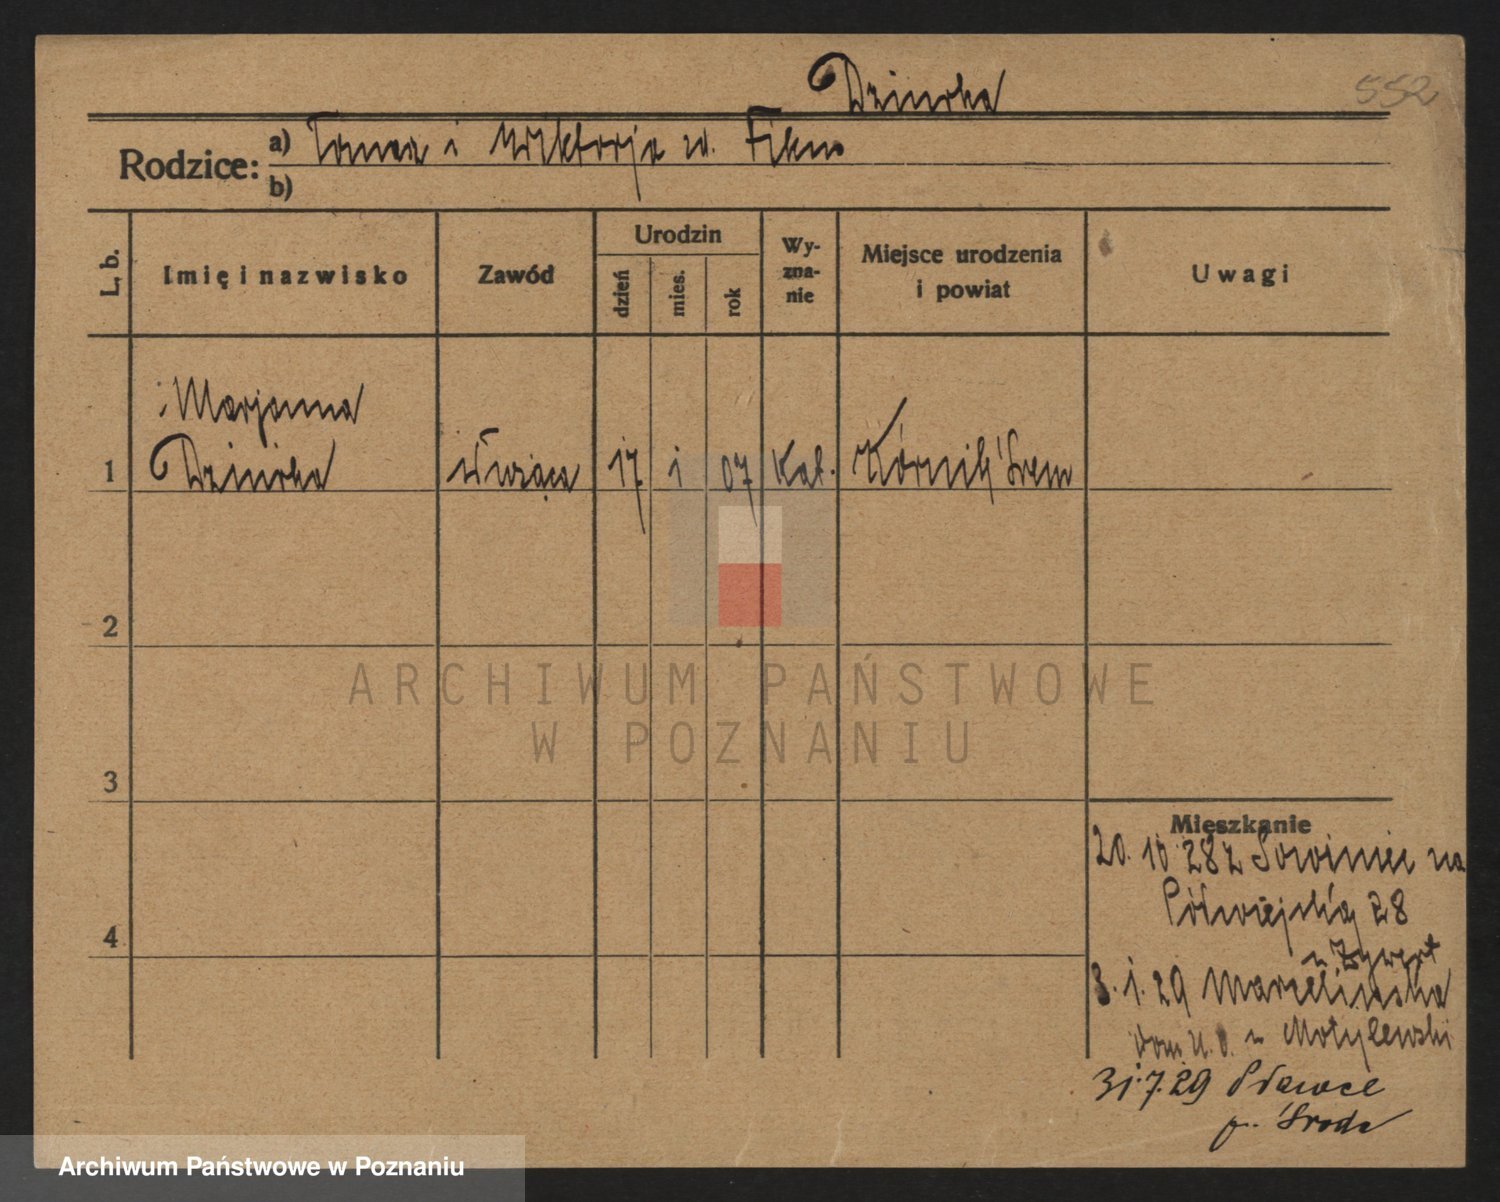 Dziurka
552
Rodzice: a) Tomasz i Wiktorja
b)
L. b. Imię i nazwisko Zawód Urodzin dzień mies. rok Wy-zna-nie Miejsce urodzenia i powiat Uwagi
Marjanna
1 Dziurka służąca 17 1 07 Kat. Kórnik Śrem
2
3
4
ARCHIWUM PAŃSTWOWE
W POZNANIU
Mieszkanie
20. 10 28 z Sowiniec na
Półwiejską 28
3. 1. 29 Marcelińska
u Motylewski
31.7.29 Pławce
p. Środa
Archiwum Państwowe w Poznaniu